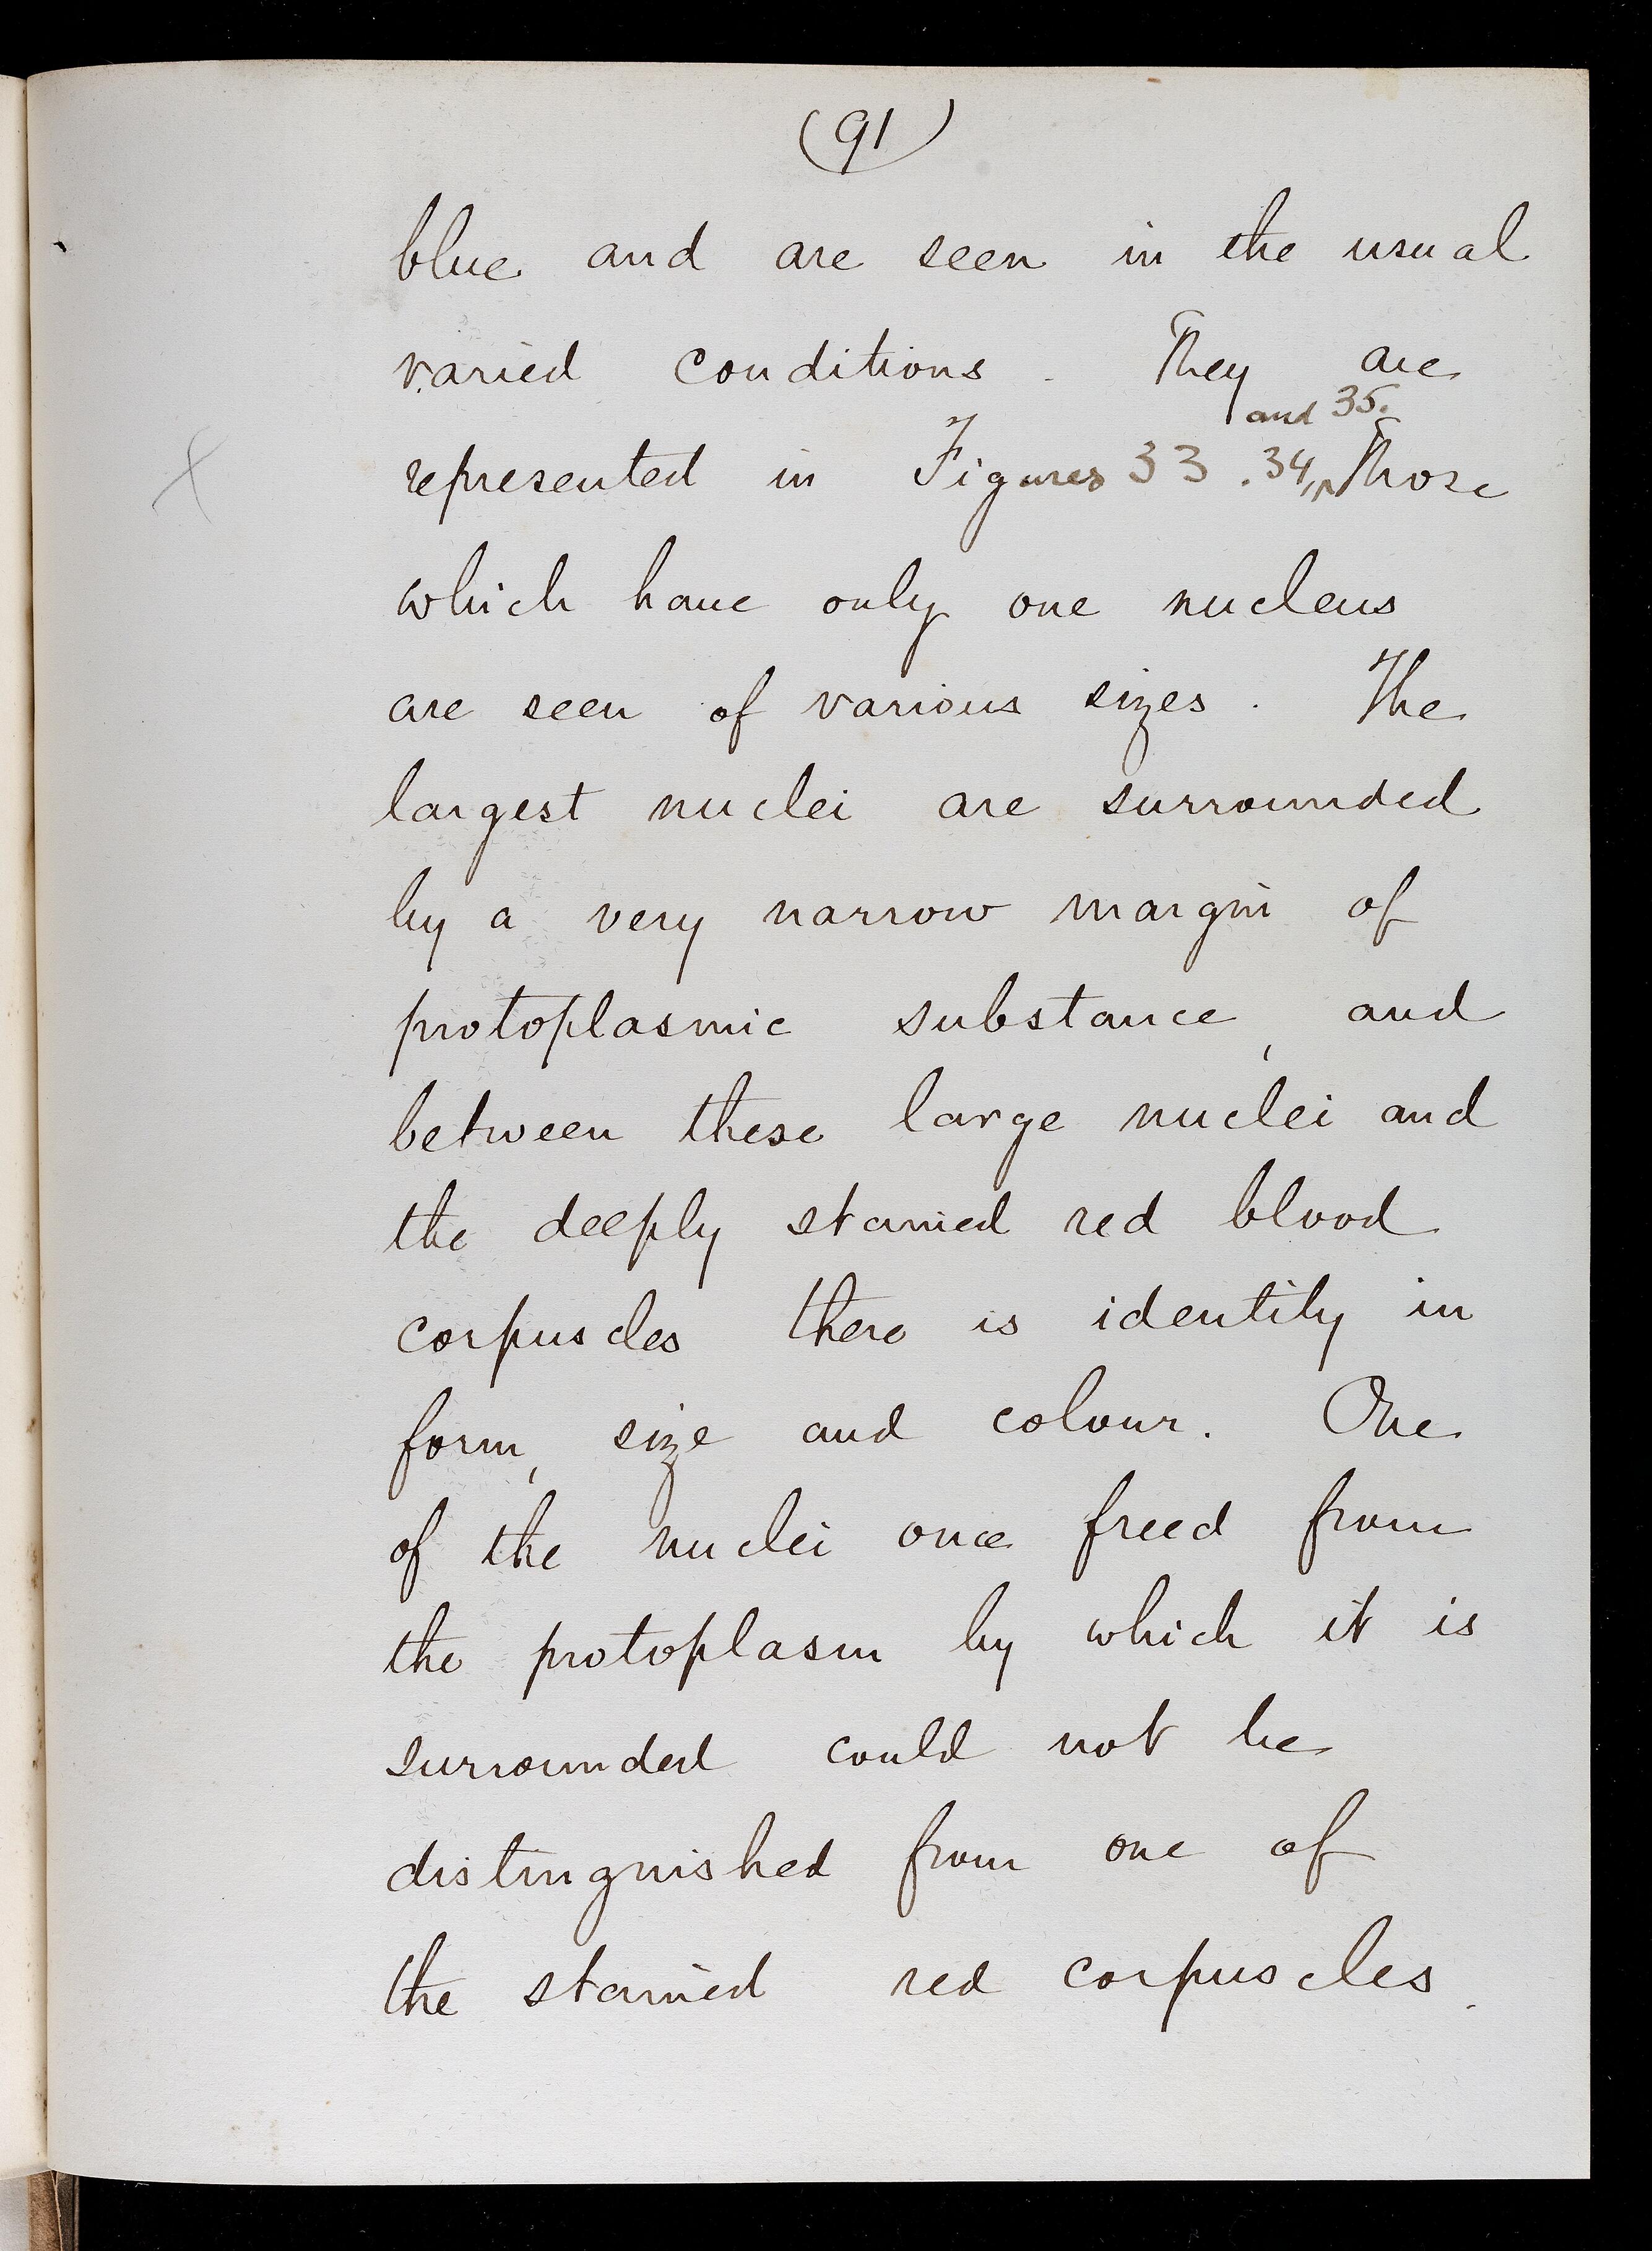 (91)
blue and are seen in the usual
varied conditions. They are
and 35.
represented in Figures 33. 34, Those
which have only one nucleus
are seen of various sizes. The
largest nuclei are surrounded
by a very narrow margin of
protoplasmic substance, and
between these large nuclei and
the deeply stained red blood
corpuscles there is identity in
form, size and colour. One
of the nuclei once freed from
the protoplasm by which it is
surrounded could not be
distinguished from one of
the stained red corpuscles.